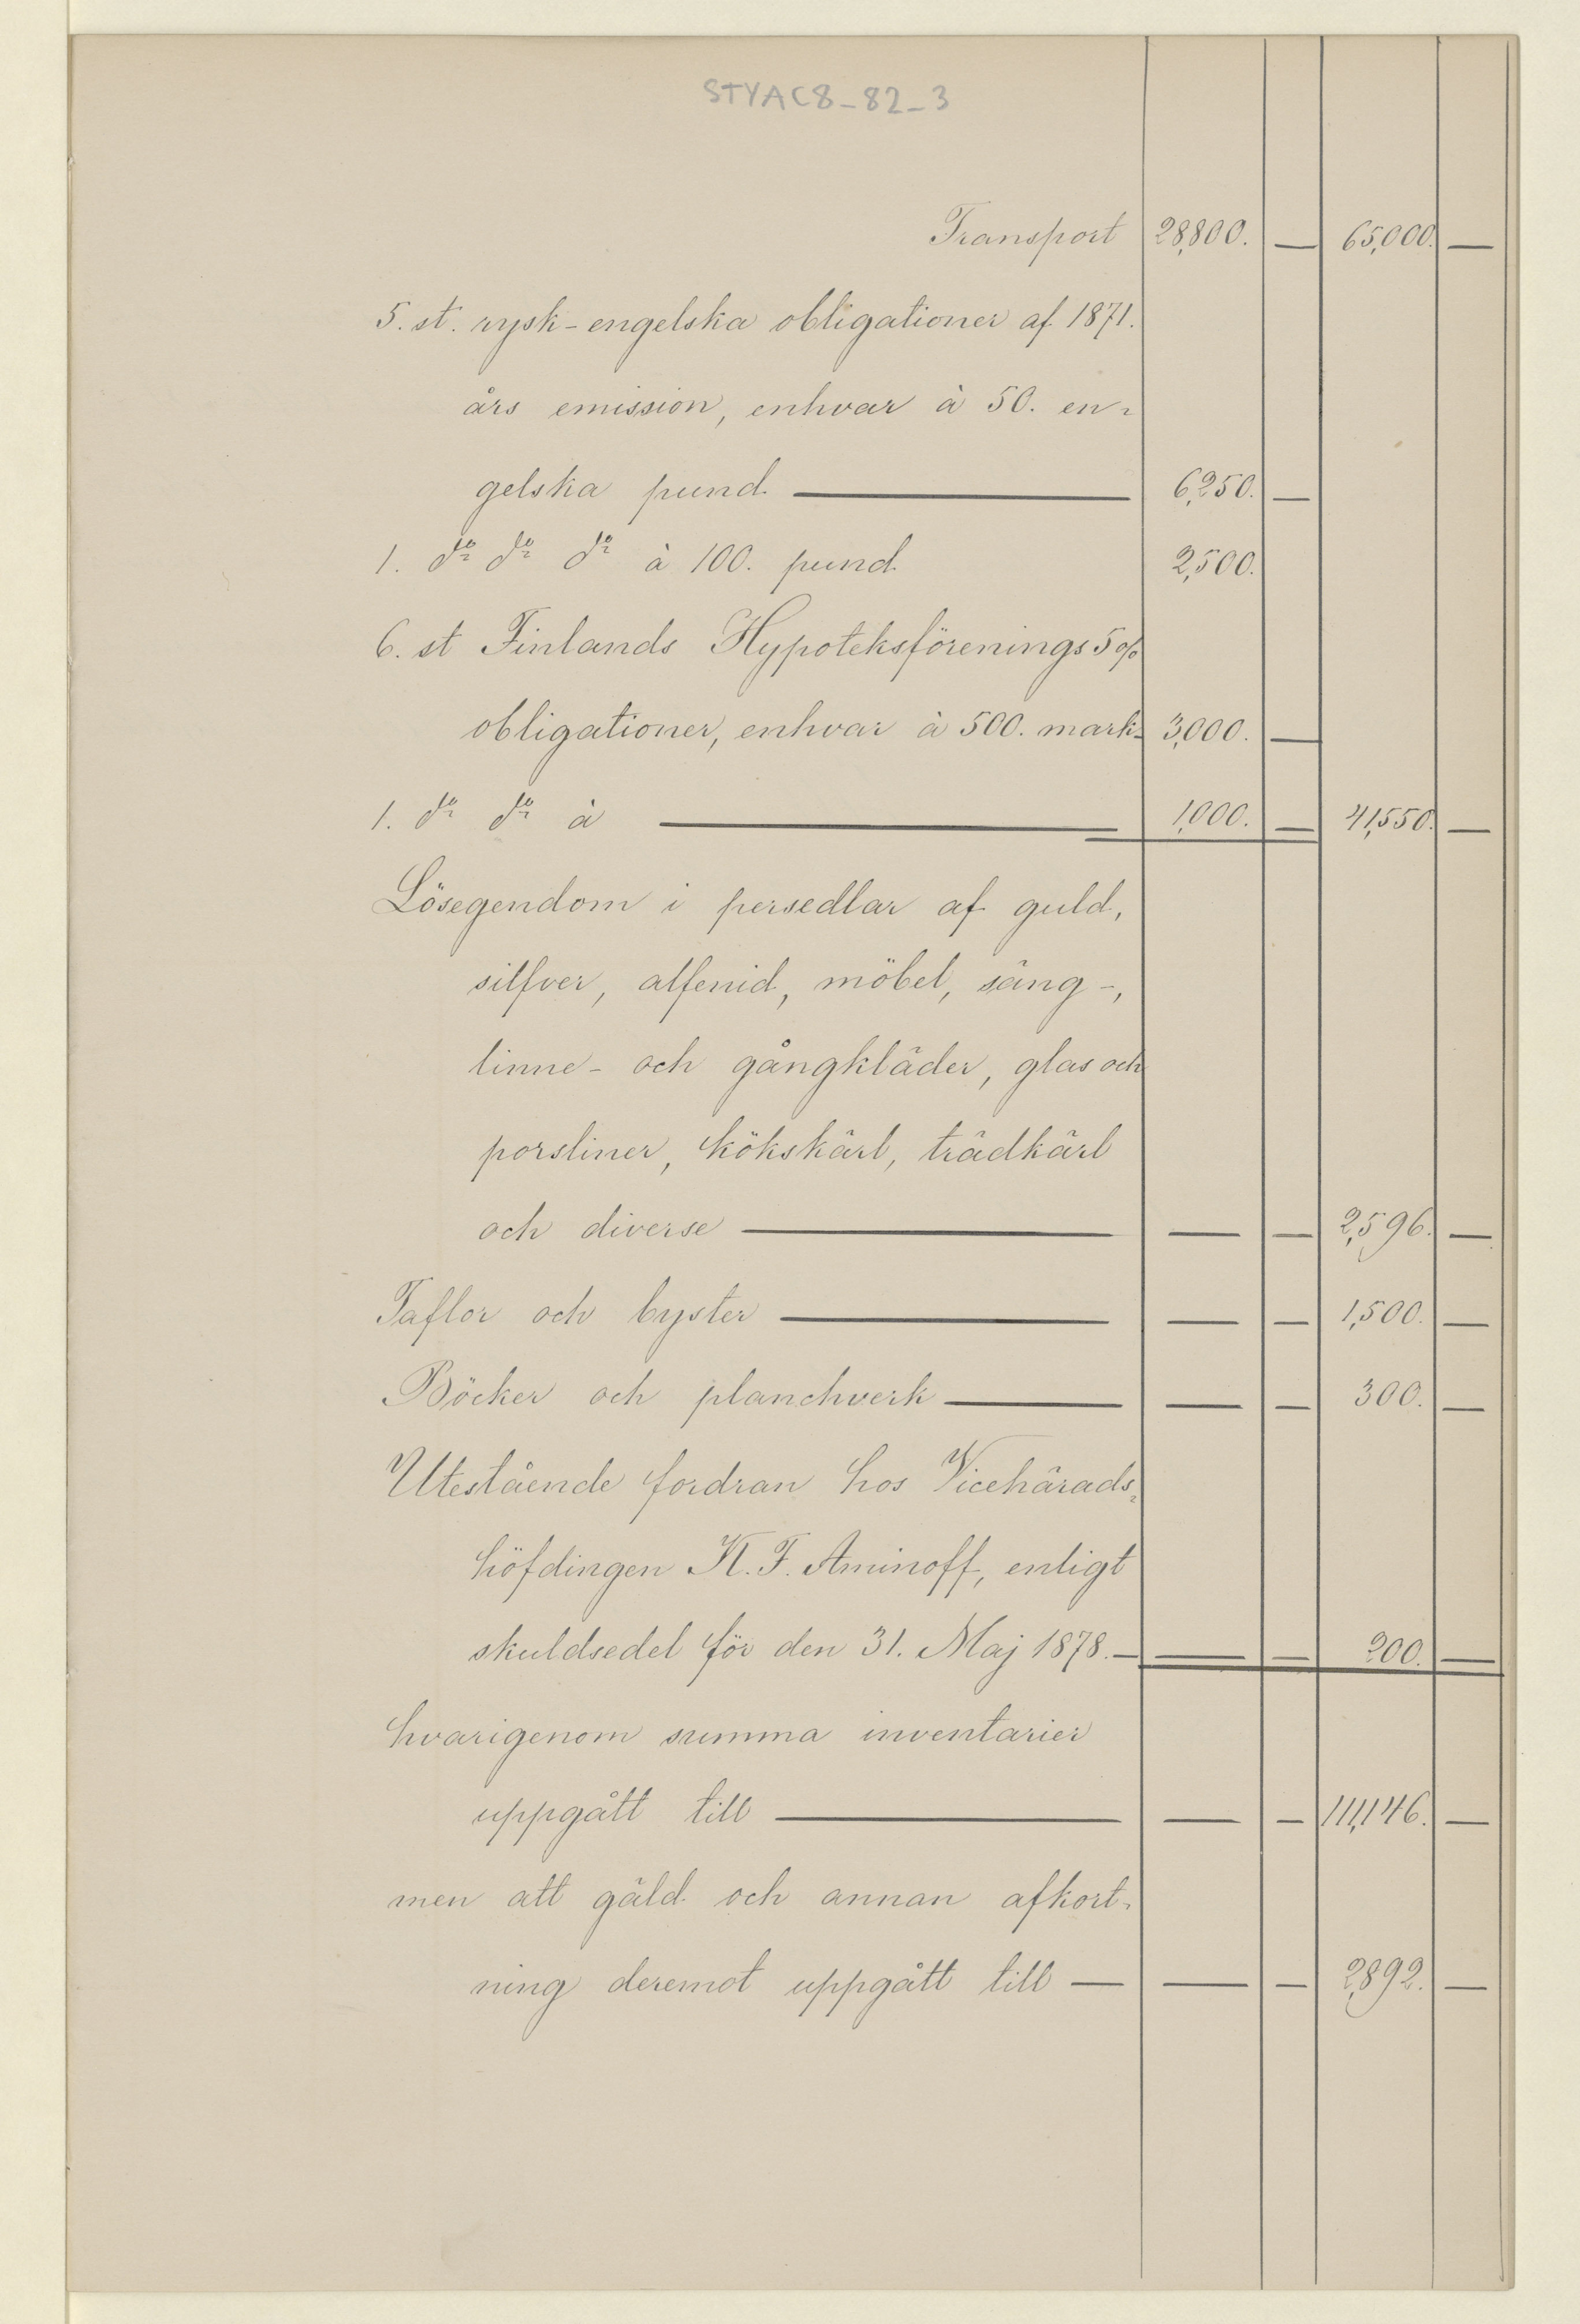 STYAC8_82_3
Transport 28,800. — 65,000. —
5. st. rysk-engelska obligationer af 1871.
års emission, enhvar à 50. en-
gelska pund — 6,250. —
1. do do do à 100. pund. 2,500.
6. st Finlands Hypoteksförenings 5%
obligationer, enhvar à 500. mark- 3,000. —
1. do do à — 1,000. — 41,550. —
Lösegendom i persedlar af guld,
silfver, alfenid, möbel, säng-,
linne- och gångkläder, glas och
porsliner, kökskärl, trädkärl
och diverse — — — 2,596. —
Taflor och byster — — — 1,500. —
Böcker och planchverk — — — 300. —
Utestående fordran hos Vicehärads-
höfdingen K. F. Aminoff, enligt
skuldsedel för den 31. Maj 1878. — — — 200. —
hvarigenom summa inventarier
uppgått till — — — 111,146. —
men att gäld och annan afkort-
ning deremot uppgått till — — — 2,892. —